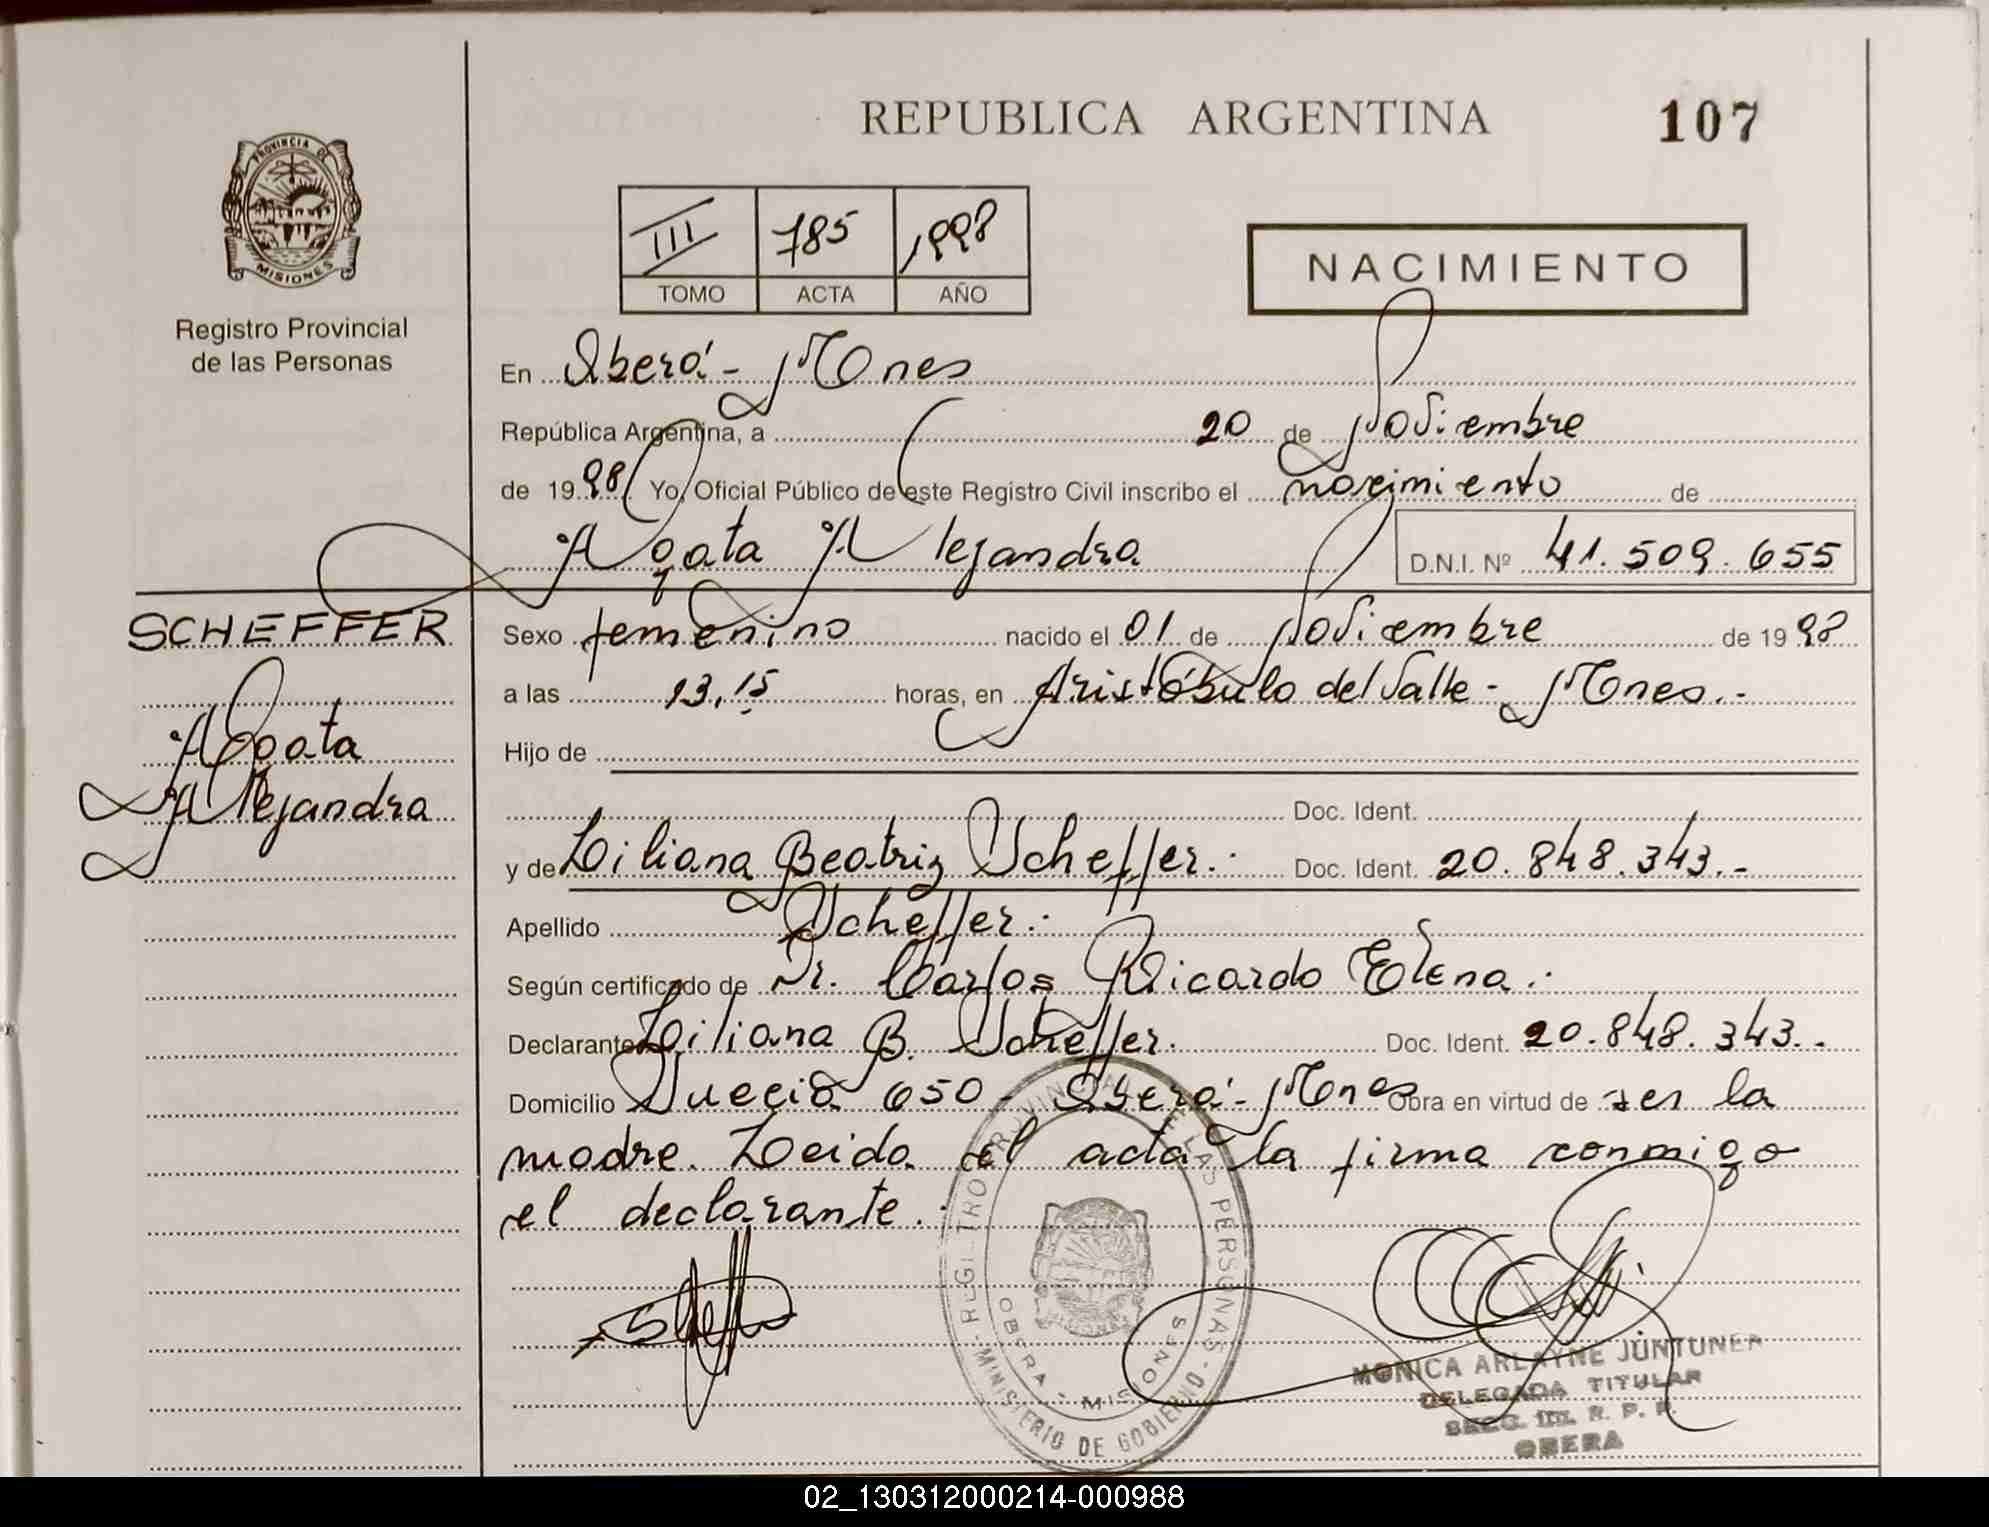 REPUBLICA ARGENTINA
107
PROVINCIA DE
MISIONES
Registro Provincial
de las Personas
III 785 1998
TOMO ACTA AÑO
NACIMIENTO
En Oberá - Mnes
República Argentina, a 20 de Noviembre
de 1998 Yo, Oficial Público de este Registro Civil inscribo el nacimiento de
Agata Alejandra
D.N.I. Nº 41.509.655
SCHEFFER
Agata
Alejandra
Sexo femenino nacido el 01 de Noviembre de 1998
a las 13,15 horas, en Aristóbulo del Valle - Mnes.-
Hijo de
Doc. Ident.
y de Liliana Beatriz Scheffer.- Doc. Ident. 20.848.343.-
Apellido Scheffer.-
Según certificado de Dr. Carlos Ricardo Elena.-
Declarante Liliana B. Scheffer. Doc. Ident. 20.848.343.-
Domicilio Suecia 650 - Oberá - Mnes Obra en virtud de ser la
madre. Leida el acta la firma conmigo
el declarante.-
REGISTRO PROVINCIAL DE LAS PERSONAS - MINISTERIO DE GOBIERNO -
OBERA - MISIONES
MONICA ARLAYNE JUNTUNEN
DELEGADA TITULAR
SECC. 1ra. R. P. P.
OBERA
02_130312000214-000988